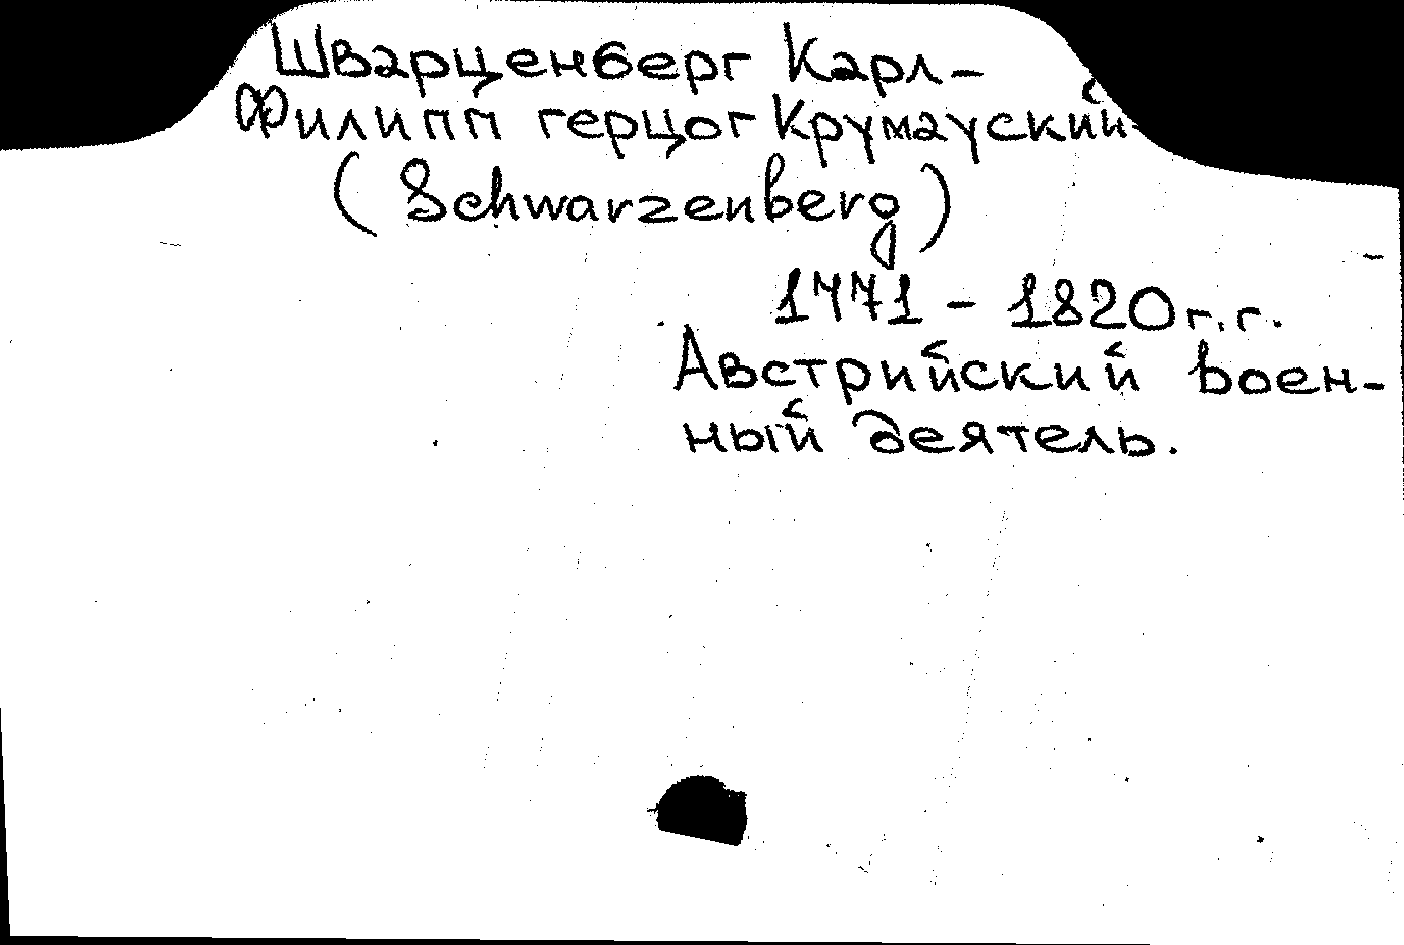 Шварценберг Карл-
Филипп герцог Крумауский
(Schwarzenberg)
1771 - 1820 г.г.
Австрийский воен-
ный деятель.